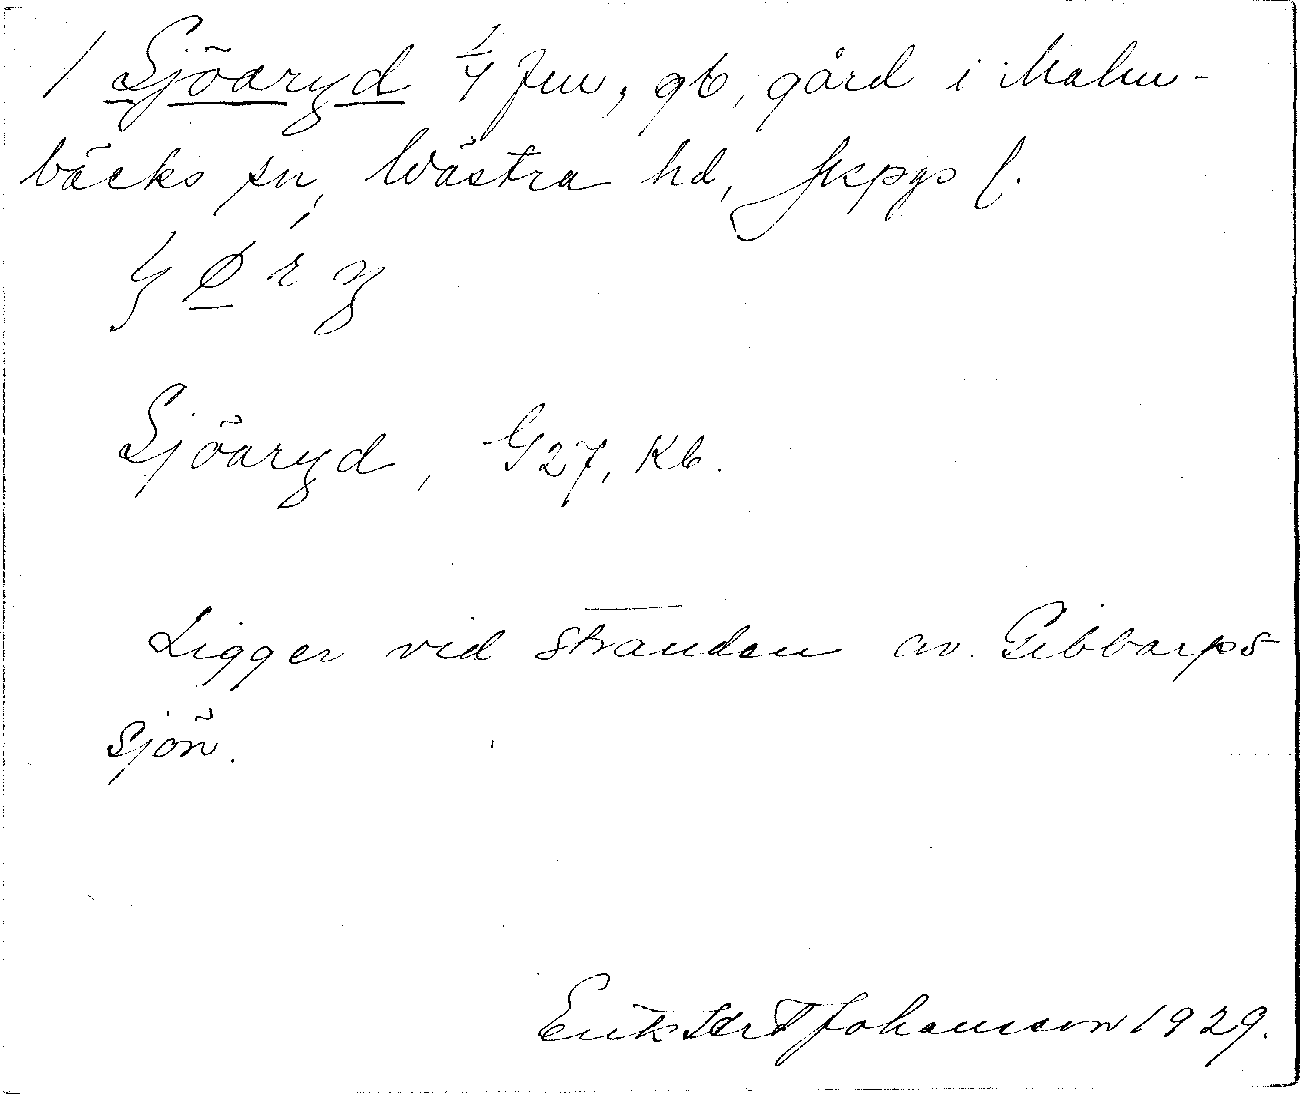 1 Sjöaryd 1/4 fm, gb, gård i Malm-
bäcks sn, Wästra hd, Jkpgs l.
Sjöaryd, G27, Kb.
Ligger vid stranden av Gibbarps
sjön.
Erik Johansson 1929.